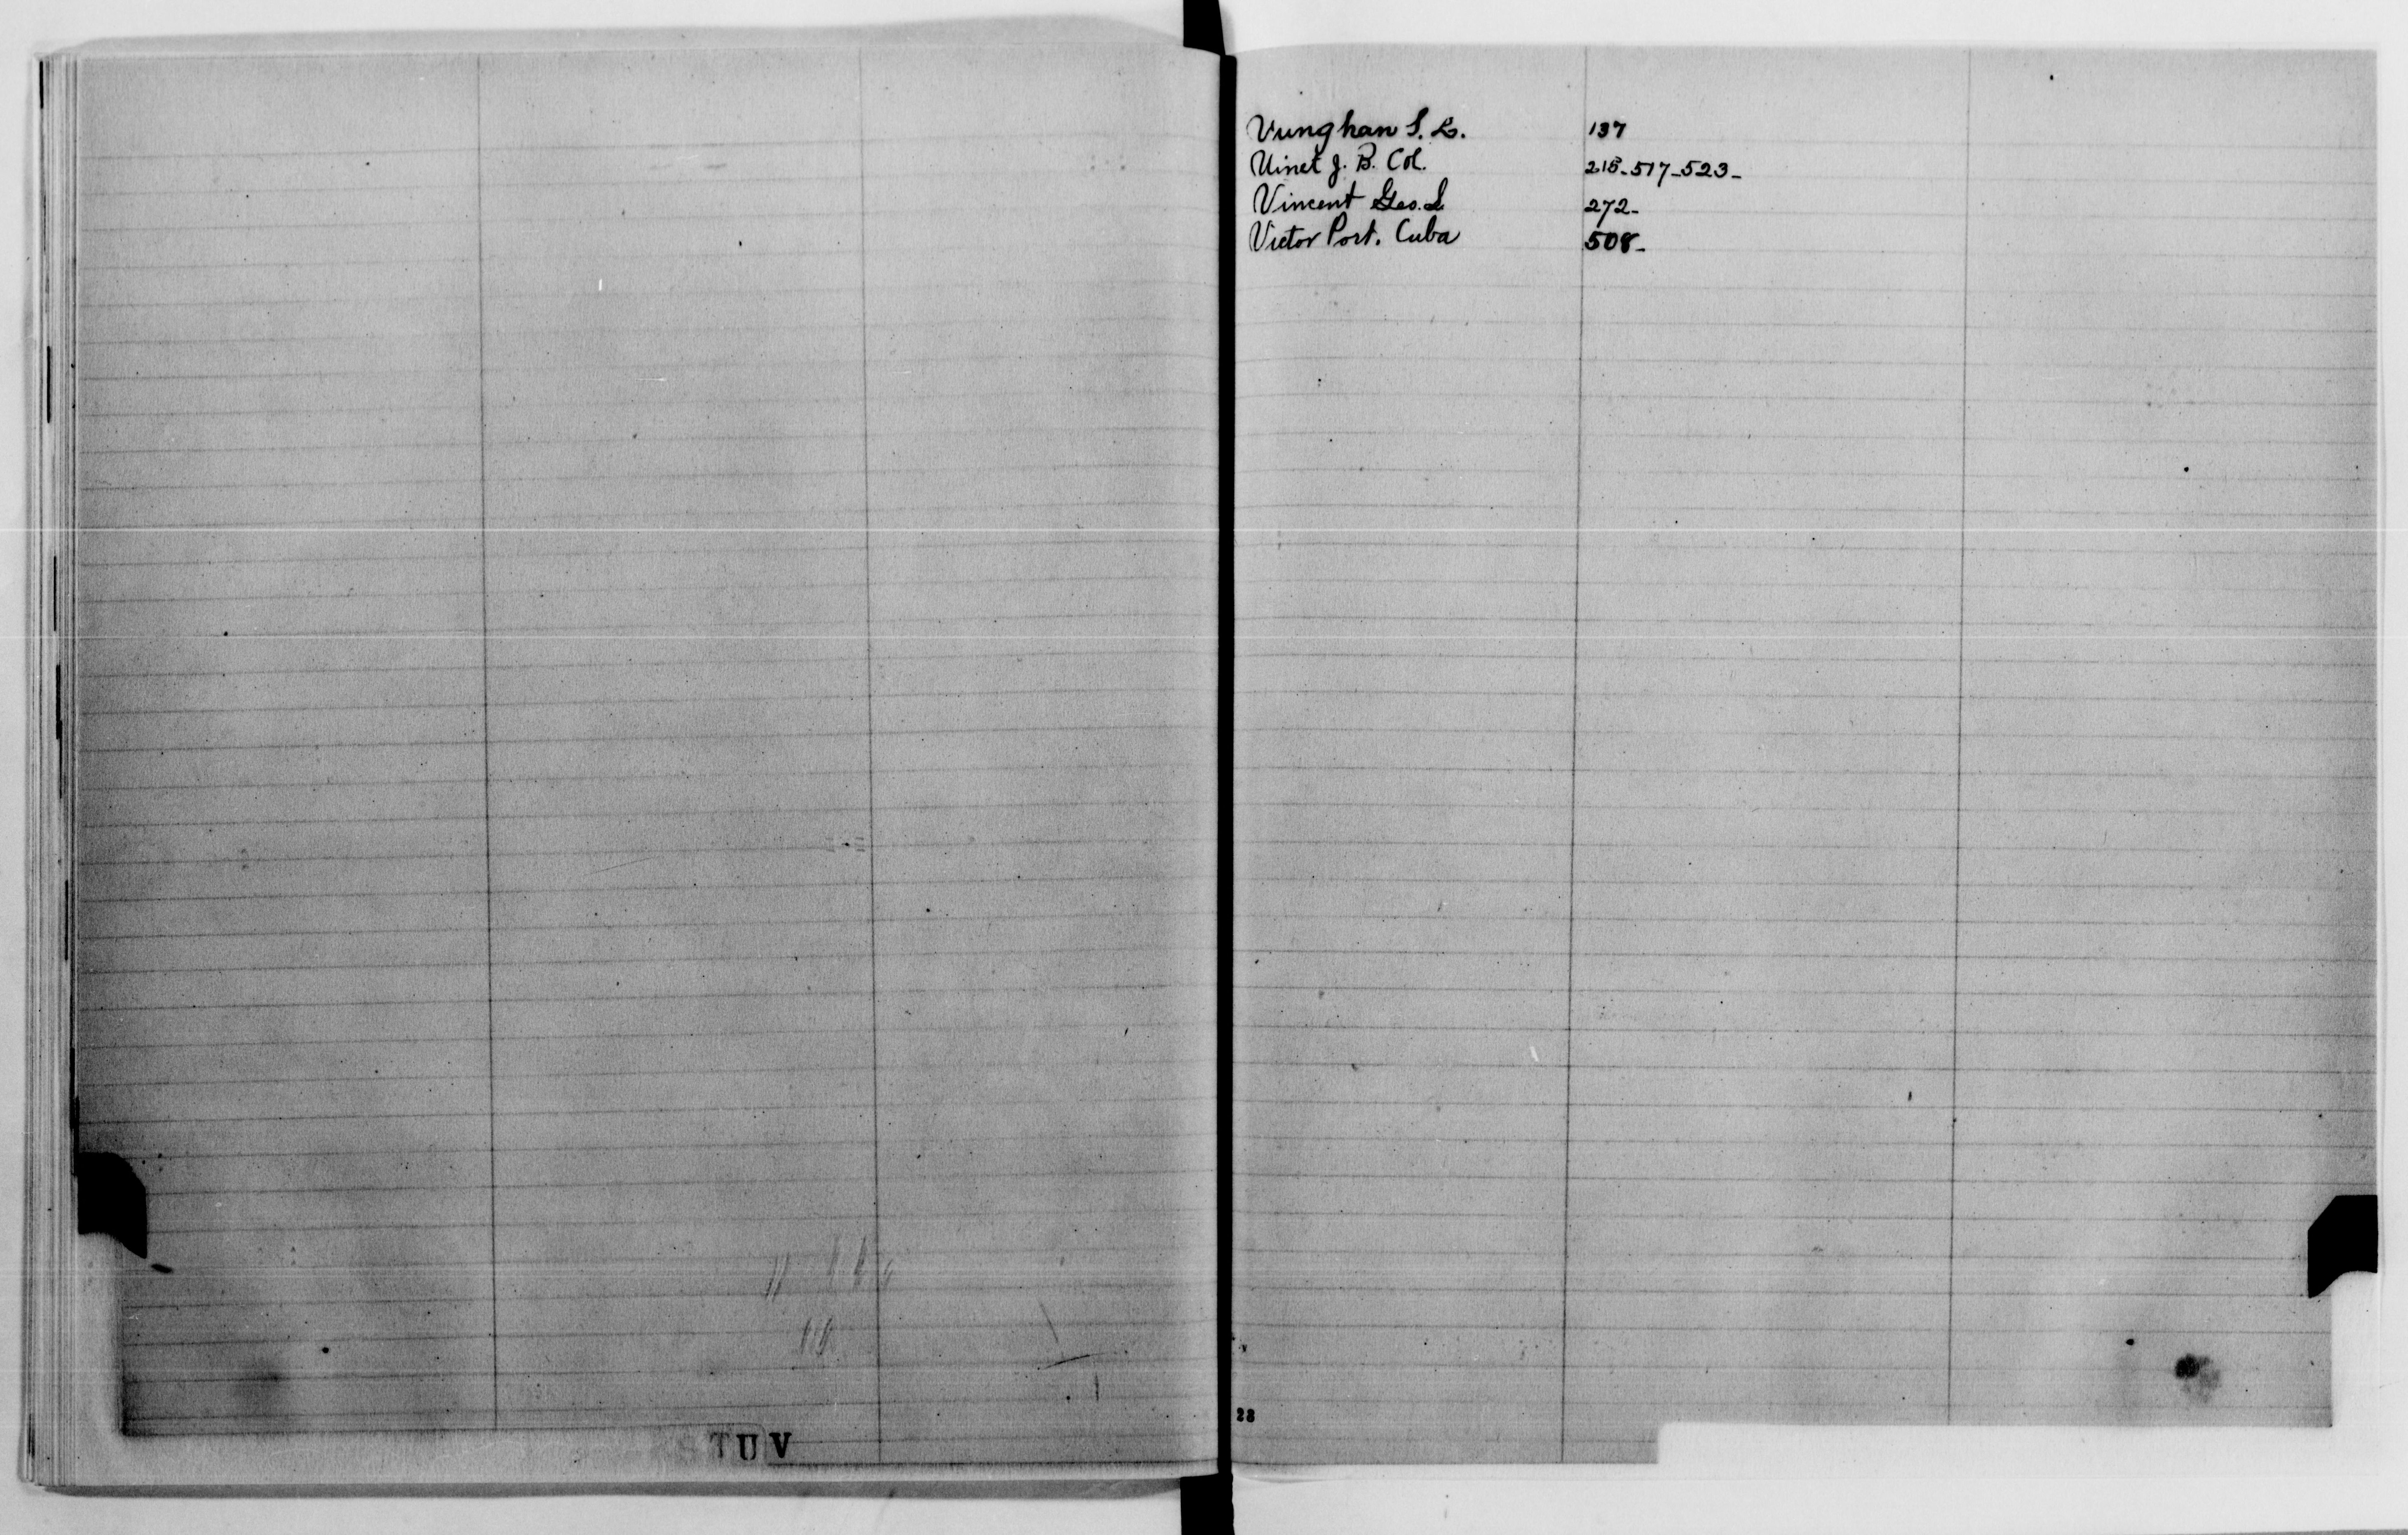 Vunghan S. L. 137
Vinet J. B. Col. 218-517-523-
Vincent Geo. S 272-
Victor Port. Cuba 508-
28
S T U V